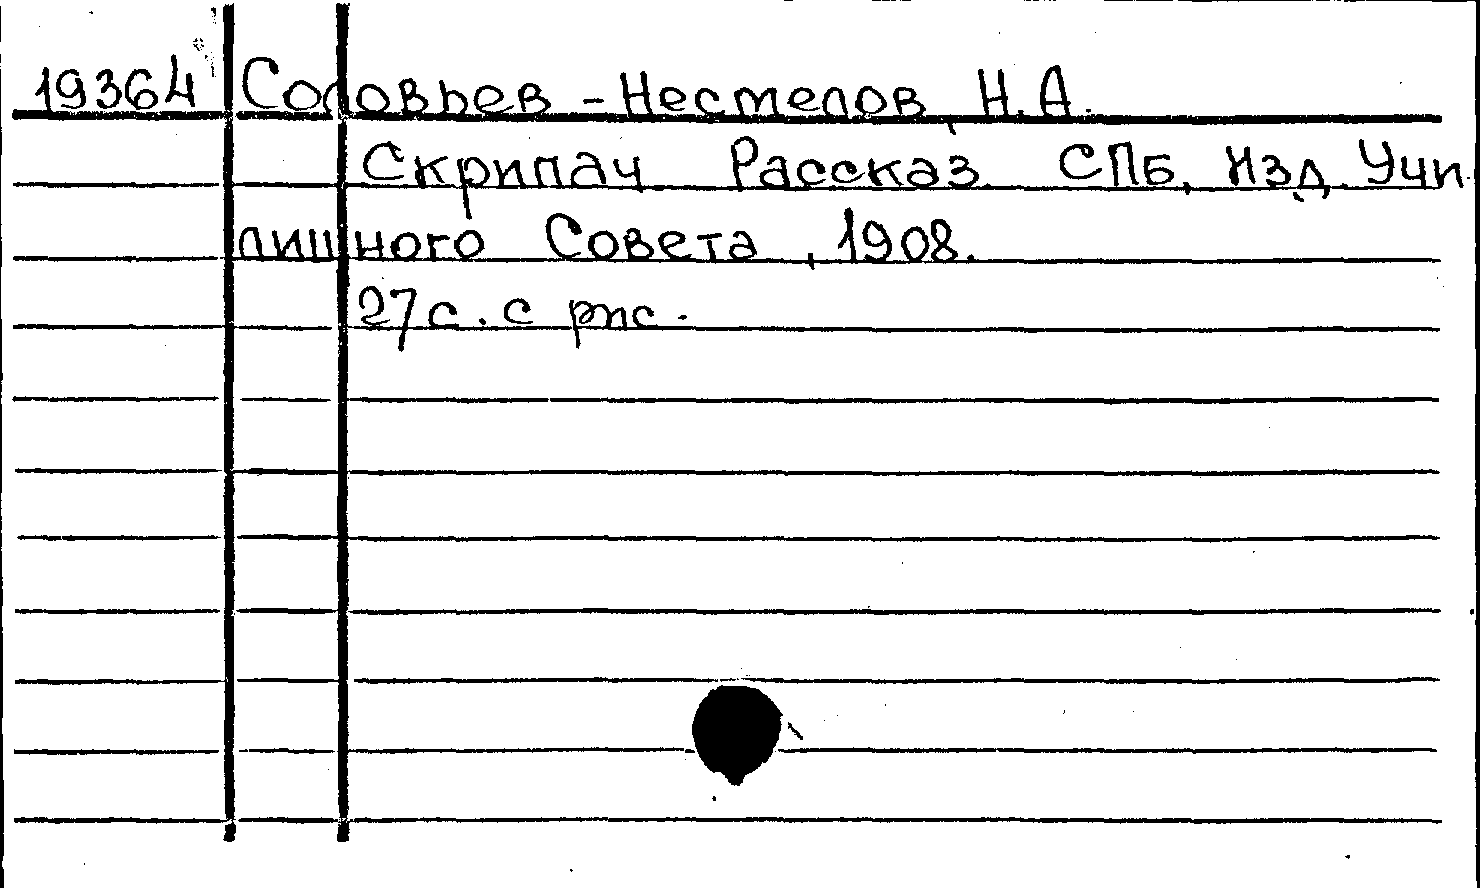 19364 Соловьев - Нестелов, Н.А.
Скрипач Рассказ. СПБ, Изд. Учи
лишного Совета, 1908.
27 с. с рис.